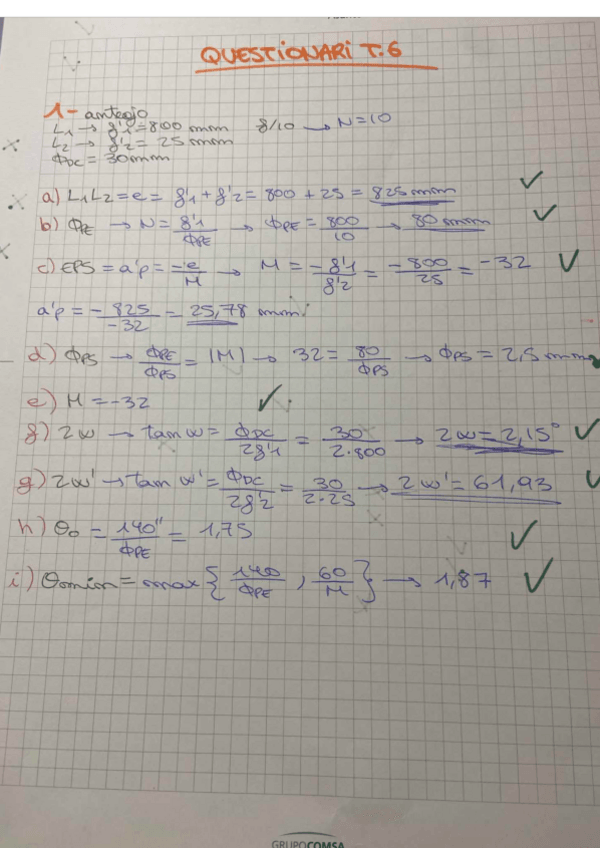 QUESTIONARI T.6
1- anteojo
L1 → f'1 = 800 mm f/10 → N = 10
L2 → f'2 = 25 mm
ΦDC = 30 mm
a) L1L2 = e = f'1 + f'2 = 800 + 25 = 825 mm ✓
b) ΦPE → N = f'1/ΦPE → ΦPE = 800/10 → 80 mm ✓
c) EPS = a'p = -e/M → M = -f'1/f'2 = -800/25 = -32 ✓
a'p = -825/-32 = 25,78 mm.
d) ΦPS → ΦPE/ΦPS = |M| → 32 = 80/ΦPS → ΦPS = 2,5 mm
e) M = -32 ✓
f) 2w → tan w = ΦDC/2f'1 = 30/2·800 → 2w = 2,15° ✓
g) 2w' → tan w' = ΦDC/2f'2 = 30/2·25 → 2w' = 61,93 ✓
h) θo = 140"/ΦPE = 1,75 ✓
i) θomin = max { 140/ΦPE , 60/M } → 1,87 ✓
GRUPOCOMSA